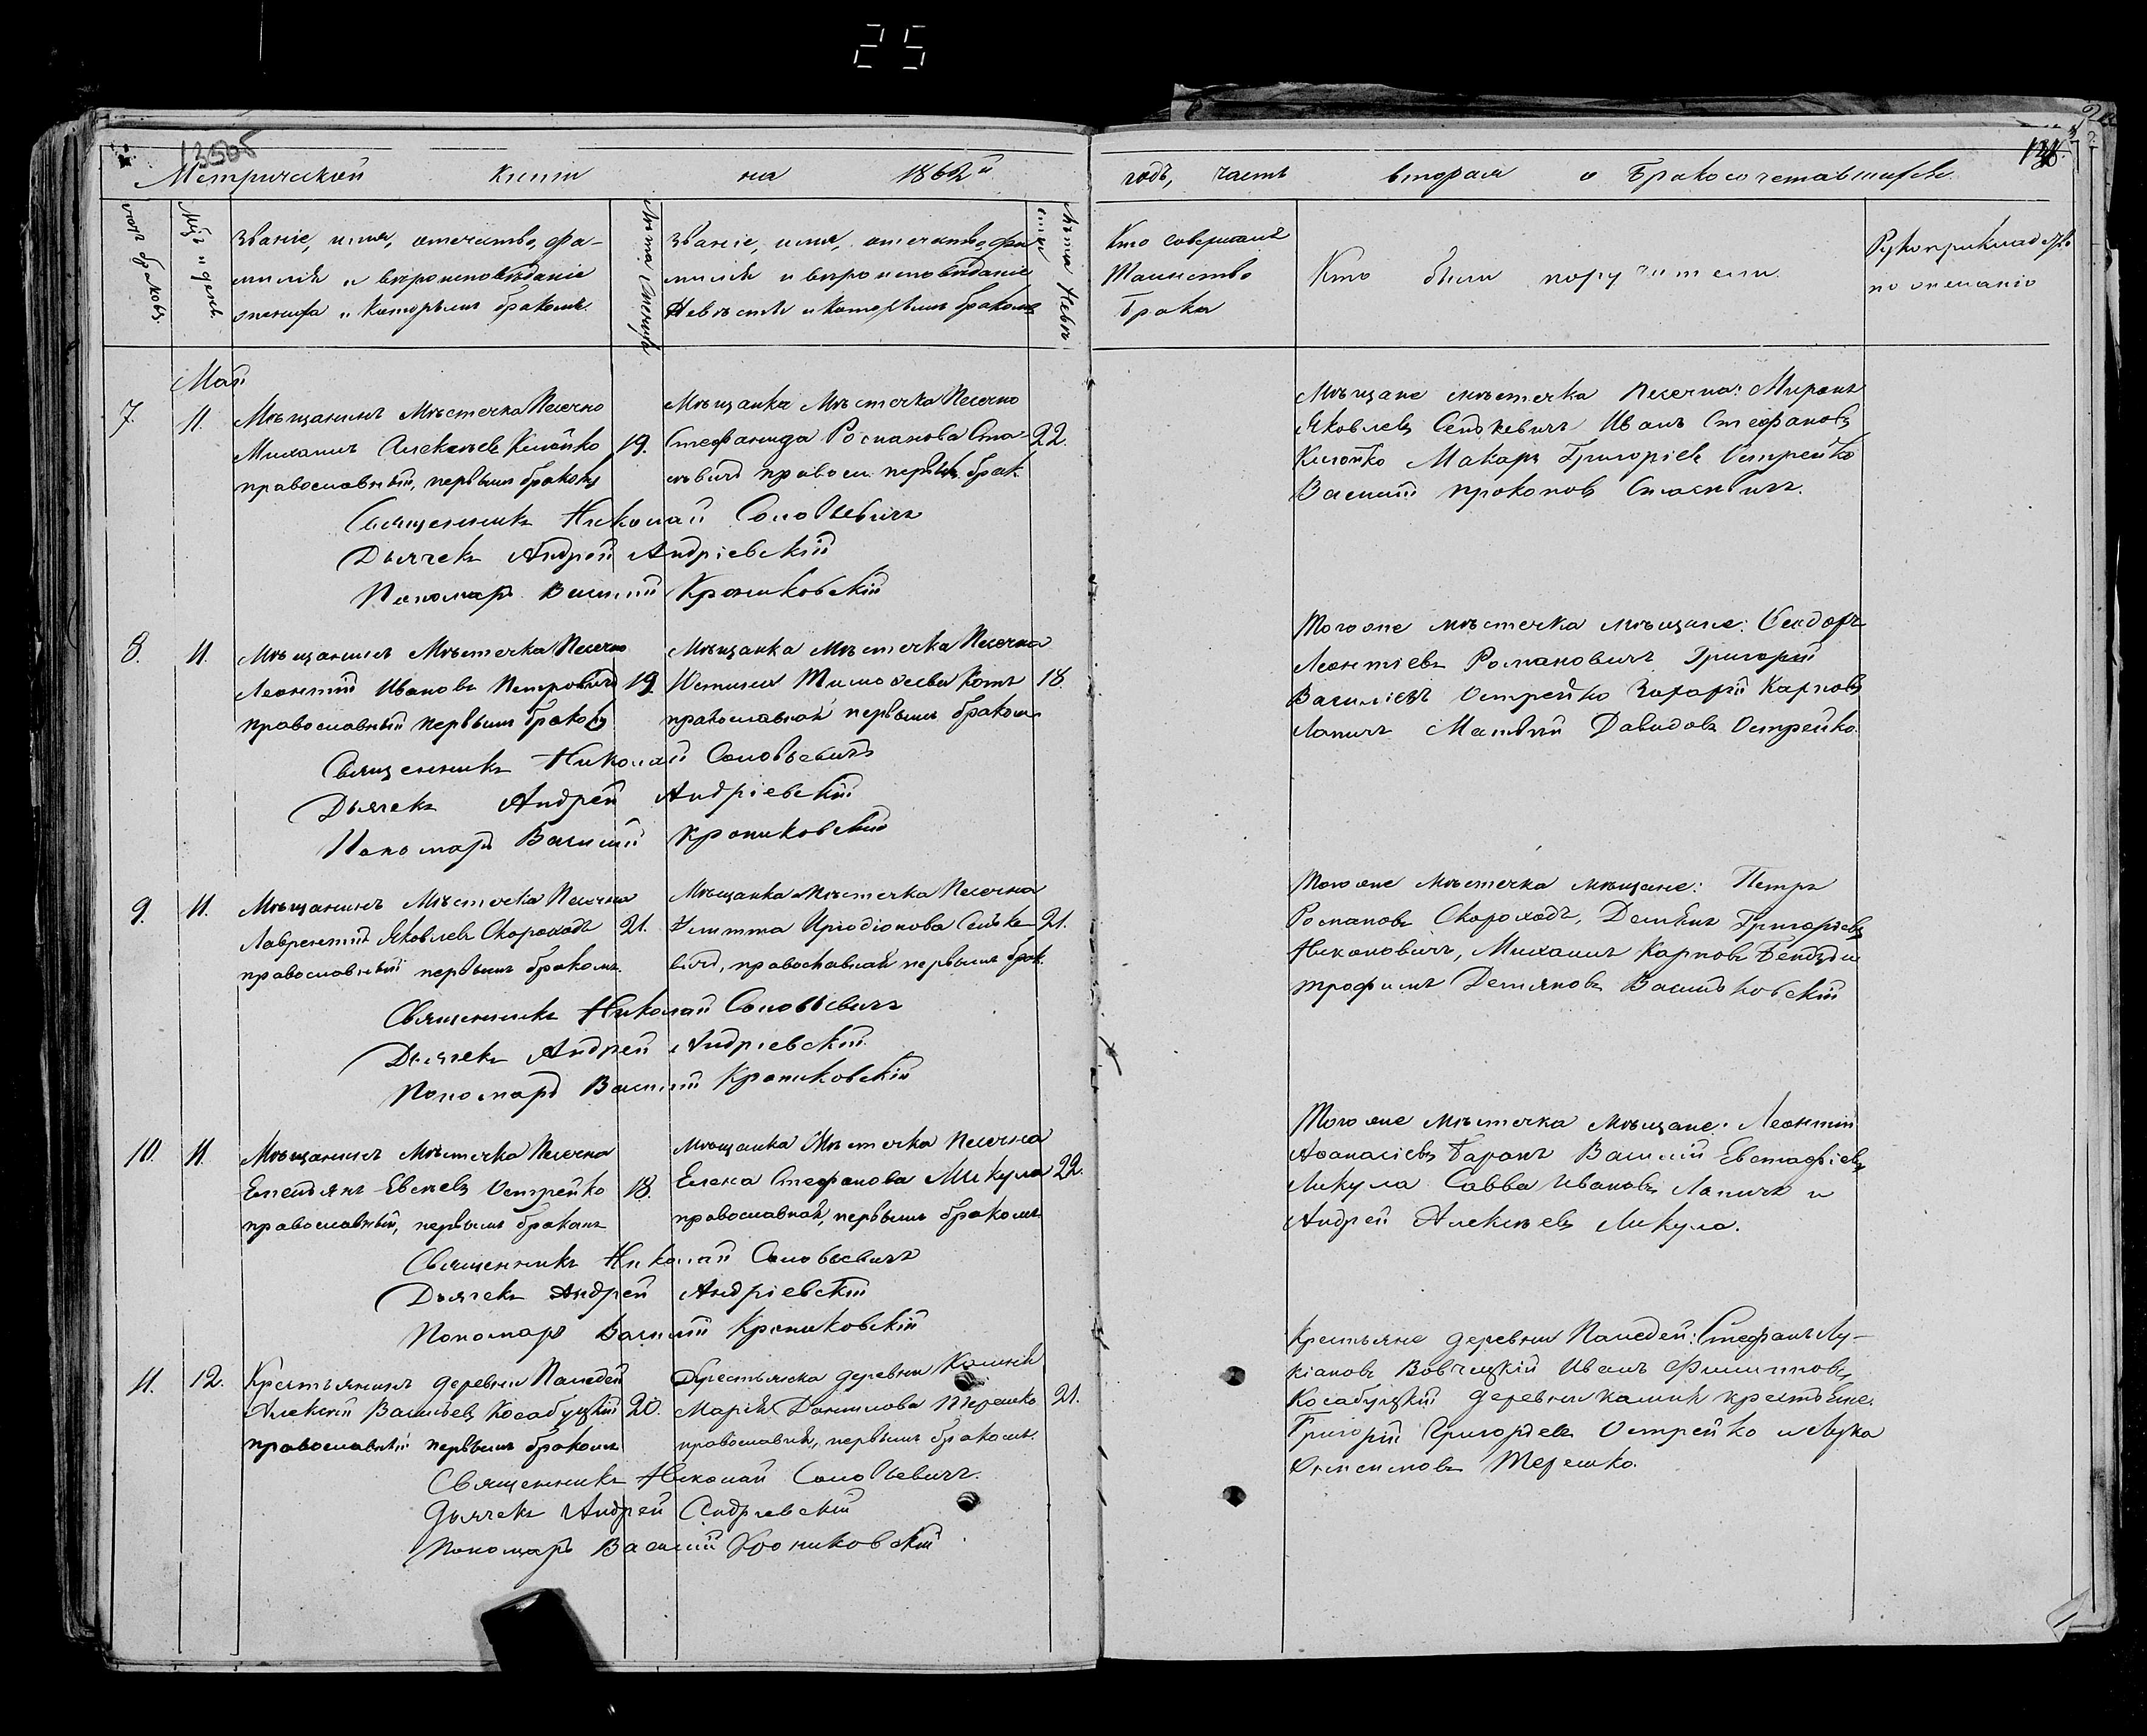 25
Метрической книги на 1862й годъ, часть вторая о бракосочетавшихся
Счетъ браковъ.
Мцъ и день
Званіе, имя, отечество, фа-
милія и вѣроисповѣданіе
жениха и которымъ бракомъ.
Лѣта жениха
Званіе, имя, отечество, фа
милія и вѣроисповѣданіе
Невѣсты и которымъ бракомъ
Лѣта Невѣ
сты
Кто совершалъ
Таинство
Брака
Кто были поручители
Рукоприкладство
по желанію
Май
7. 11. Мѣщанинъ Мѣстечка Песочно
Михаилъ Алексѣевъ 19.
православный, первымъ бракомъ
Мѣщанка Мѣстечка Песочно
Стефанида Романова Ста- 22.
правосл. первым брак.
Священникъ Николай Соловьевичъ
Дьячекъ Андрей Андріевскій
Пономарь Василій Крониковскій
Мѣщане мѣстечка Песочна: Миронъ
Яковлевъ Сенкевичъ Иванъ Стефановъ
Макаръ Григоріевъ Острейко
Василій Прокоповъ
8. 11. Мѣщанинъ Мѣстечка Песочно
Леонтій Ивановъ Петровичъ 19
Православный первымъ бракомъ
Мѣщанка мѣстечка Песочна
Устинья Тимоѳеева Котъ 18.
православная первымъ бракомъ
Священникъ Николай Соловьевичъ
Дьячекъ Андрей Андріевскій
Пономарь Василій Крониковскій
Тогоже мѣстечка мѣщане:
Леонтіевъ Романовичъ Григорій
Василіевъ Острейко Захарій Карповъ
Лапичъ Матвѣй Давидовъ Острейко.
9. 11. Мѣщанинъ Мѣстечка Песочна
Лаврентій Яковлевъ Скороходъ 21.
православный первымъ бракомъ.
Мѣщанка Мѣстечка Песочна
Иродіонова Сенке- 21.
вичъ, православная первымъ брак.
Священникъ Николай Соловьевичъ
Дьячекъ Андрей Андріевскій
Пономарь Василій Крониковскій
Тогоже мѣстечка мѣщане: Петръ
Романовъ Скороходъ, Демьянъ Григоріевъ
Никоновичъ, Михаилъ Карповъ
Трофимъ Демяновъ
10. 11. Мѣщанинъ Мѣстечка Песочна
Евсѣевъ Острейко 18.
православный, первымъ бракомъ
Мѣщанка Мѣстечка Песочна
Елена Стефанова Микула 22.
православная, первымъ бракомъ
Священникъ Николай Соловьевичъ
Дьячекъ Андрей Андріевскій
Пономарь Василій Крониковскій
Тогоже мѣстечка мѣщане: Леонтій
Аѳанасіевъ Баранъ Василій Евстафіевъ
Микула Савва Ивановъ Лапичъ и
Андрей Алексѣевъ Микула.
11. 12. Крестьянинъ деревни
Алексѣй Васильевъ Косабуцкій 20.
православный первымъ бракомъ
Крестьянка деревни
Марія Данилова Терешко 21.
православная, первымъ бракомъ.
Священникъ Николай Соловьевичъ.
Дьячекъ Андрей Андріевскій
Пономарь Василій Крониковскій
Крестьяне деревни Стефанъ Лу-
кіановъ Иванъ Филипповъ
Косабуцкій деревни крестьяне:
Григорій Григорьевъ Острейко и Лука
Терешко.